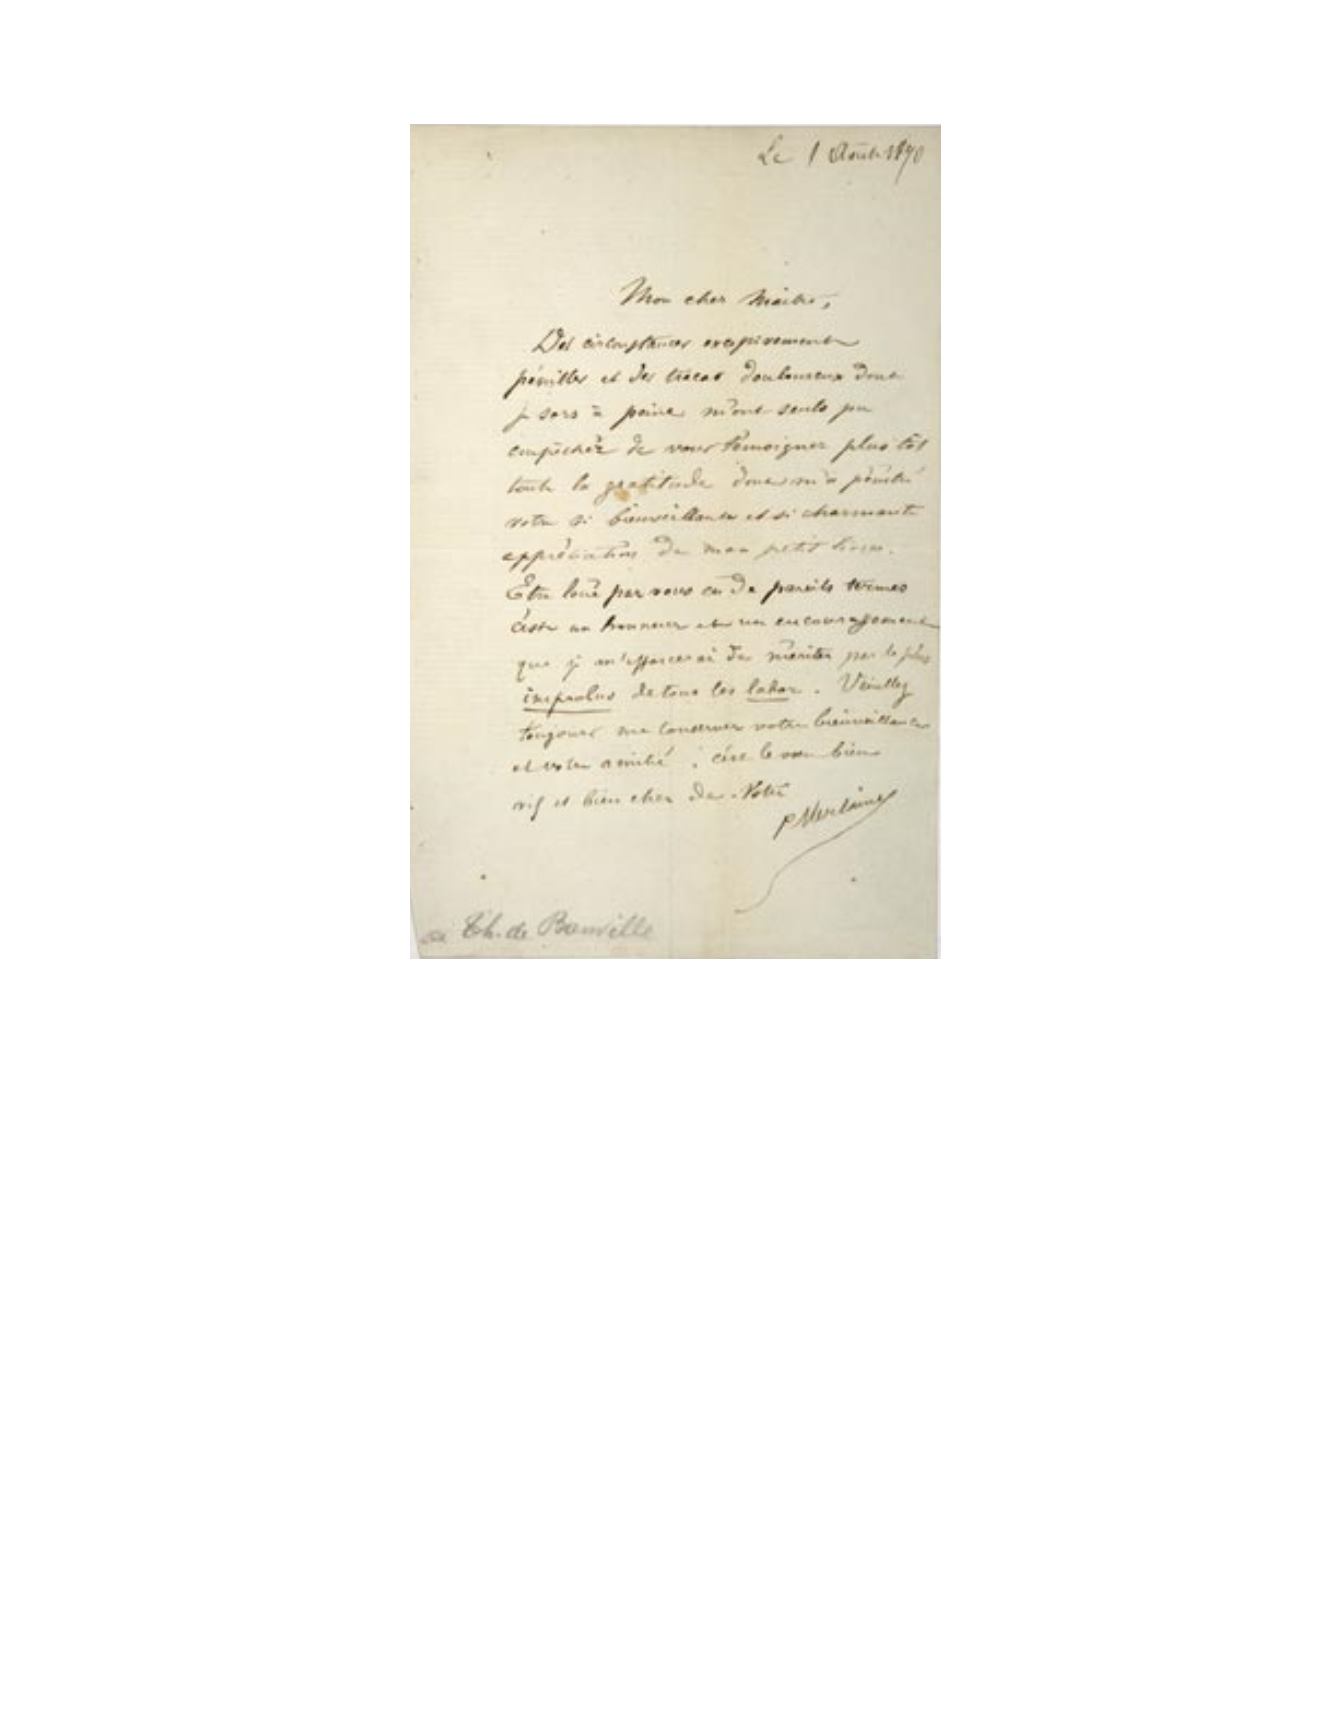 Le 1 Août 1870
Mon cher Maître,
Des circonstances excessivement
pénibles et des tracas douloureux dont
je sors à peine m'ont seuls pu
empêcher de vous témoigner plus tôt
toute la gratitude dont m'a pénétré
votre si bienveillante et si charmante
appréciation de mon petit livre.
Être loué par vous en de pareils termes
c'est un honneur et un encouragement
que je m'efforcerai de mériter par le plus
improbus de tous les labor. Veuillez
toujours me conserver votre bienveillance
et votre amitié ; c'est le vœu bien
vif et bien cher de Votre
P. Verlaine
à Th. de Banville